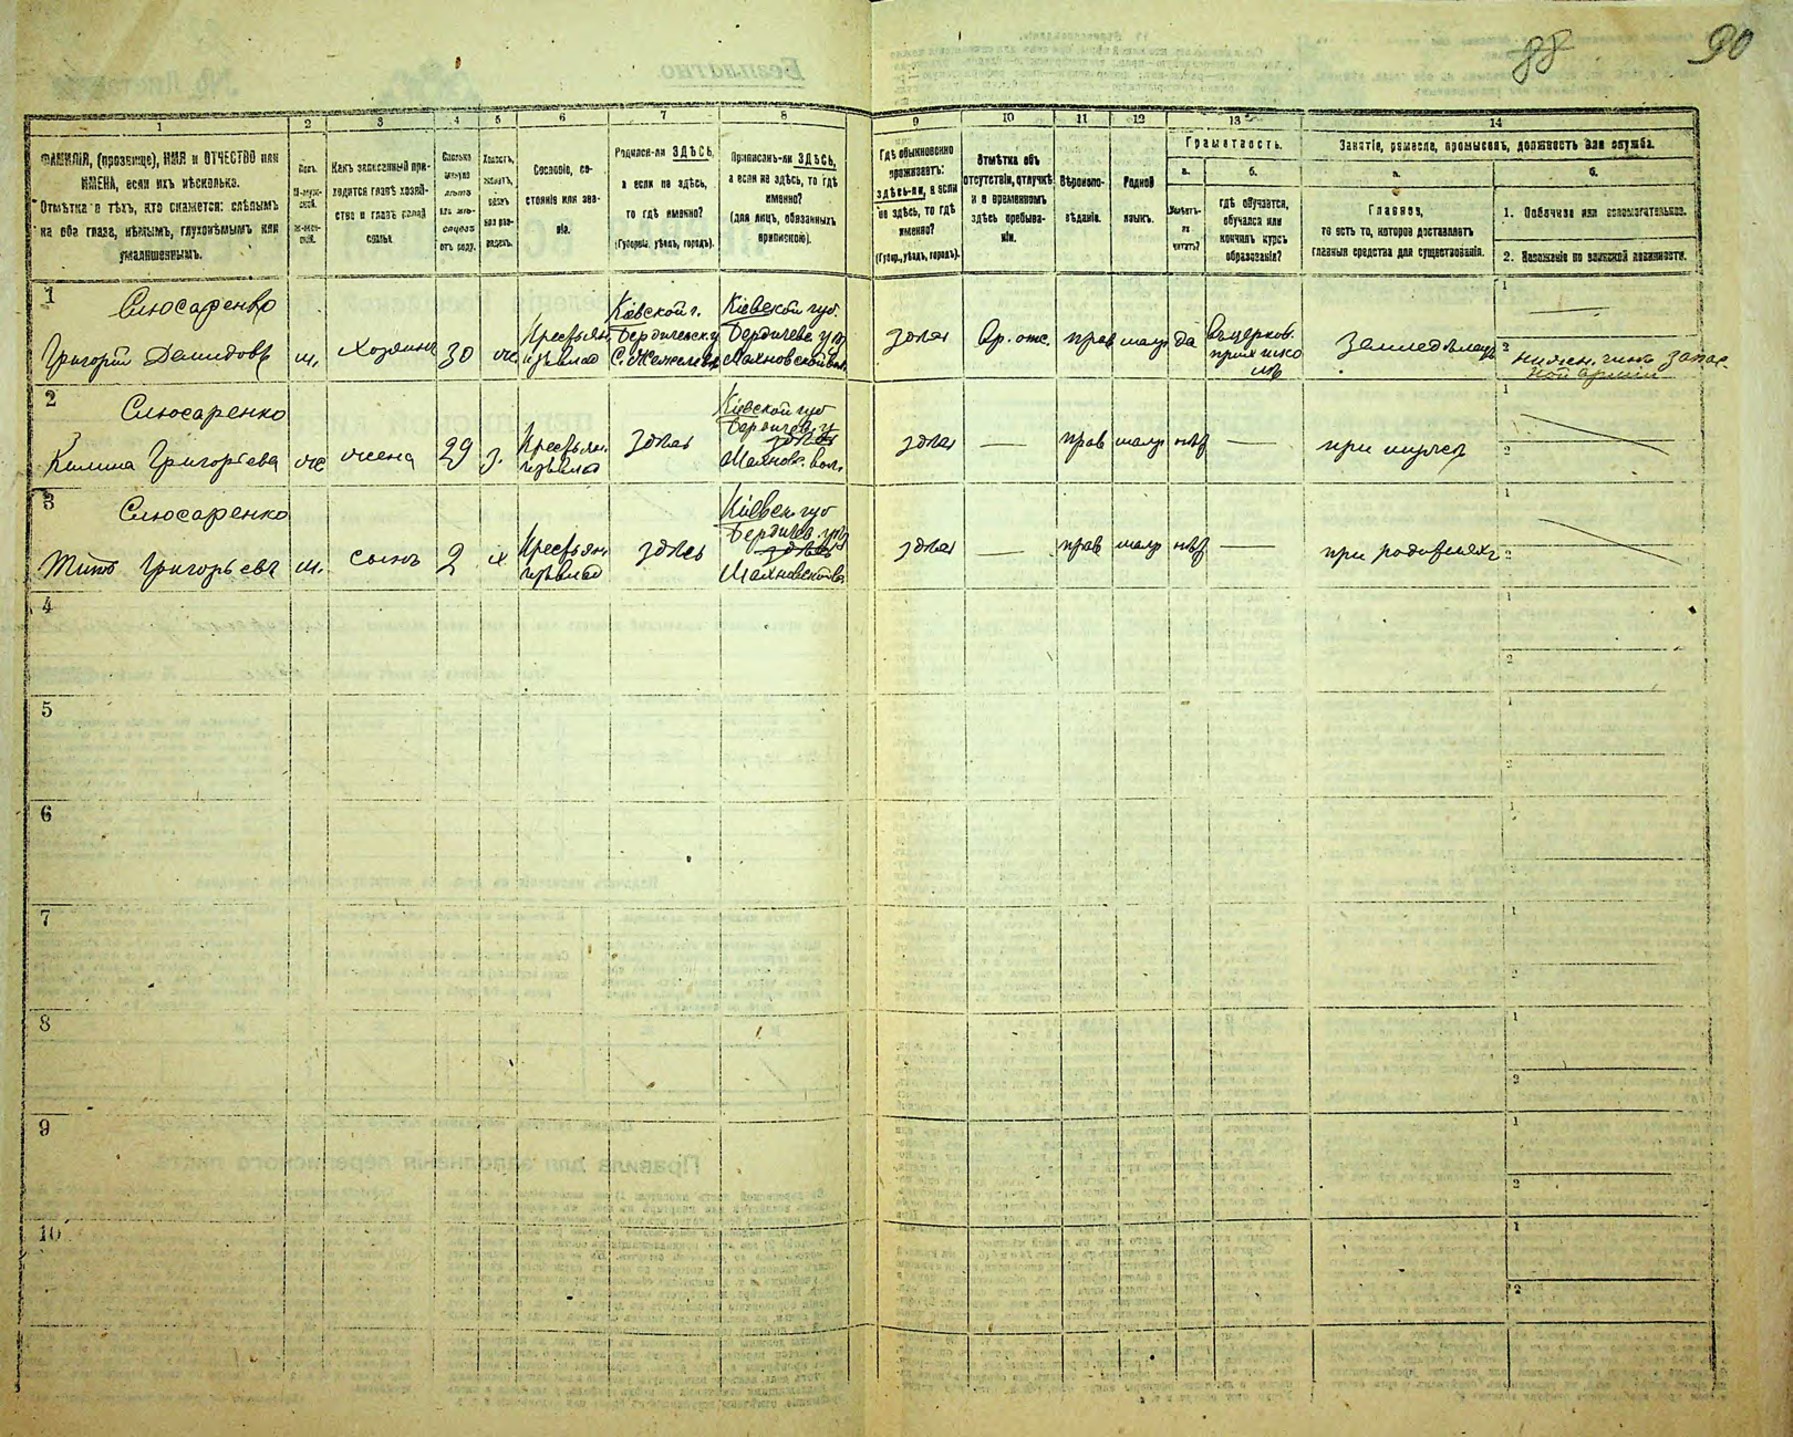 88
90
1
2
3
4
5
6
7
8
9
10
11
12
13
14
ФАМИЛІЯ, (прозвище), ИМЯ и ОТЧЕСТВО или
ИМЕНА, если ихъ нѣсколько.
Отмѣтка о тѣхъ, кто окажется: слѣпымъ
на оба глаза, нѣмымъ, глухонѣмымъ или
умалишеннымъ.
Полъ.
Какъ записанный при-
ходится главѣ хозяй-
ства и главѣ своей
семьи.
Сословіе, со-
стояніе или зва-
ніе.
Родился-ли ЗДѢСЬ,
а если не здѣсь,
то гдѣ именно?
(Губернія, уѣздъ, городъ).
Приписанъ-ли ЗДѢСЬ,
а если не здѣсь, то гдѣ
именно?
(для лицъ, обязанныхъ
припискою).
Гдѣ обыкновенно
проживаетъ:
здѣсь-ли, а если
не здѣсь, то гдѣ
именно?
(Губер., уѣздъ, городъ).
Отмѣтка объ
отсутствіи, отлучкѣ
и о временномъ
здѣсь пребыва-
ніи.
Вѣроиспо-
вѣданіе.
Родной
языкъ.
Грамотность.
а.
Умѣетъ-
ли
читать?
б.
гдѣ обучается,
обучался или
кончилъ курсъ
образованія?
Занятіе, ремесло, промыселъ, должность или служба.
а.
Главное,
то есть то, которое доставляетъ
главныя средства для существованія.
б.
1. Побочное или вспомогательное.
2. Положеніе по воинской повинности.
1
Слюсаренко
Григорій Демидовъ
м.
хозяинъ
30
ж
Кіевской г.
Бердичевск у
Кіевской губ.
Бердичев у
Махновской вол.
здѣсь
Вр. отс.
прав
малр
да
въ церков.
прих шко
лѣ
Земледѣлецъ
1
2
нижн. чинъ запас
ной арміи
2
Слюсаренко
Килина Григорьева
ж
жена
29
з.
Крестьян.
здѣсь
Кіевской губ
Бердичев. у
здѣсь
Махнов. вол.
здѣсь
прав
малр
нѣт
при мужѣ
1
2
3
Слюсаренко
Титъ Григорьевъ
м.
сынъ
2
х
Крестьян.
здѣсь
Кіевск. губ
Бердичев. у
здѣсь
здѣсь
прав
малр
нѣт
при родителяхъ
1
2
4
1
2
5
1
2
6
1
2
7
1
2
8
1
2
9
1
2
10
1
2